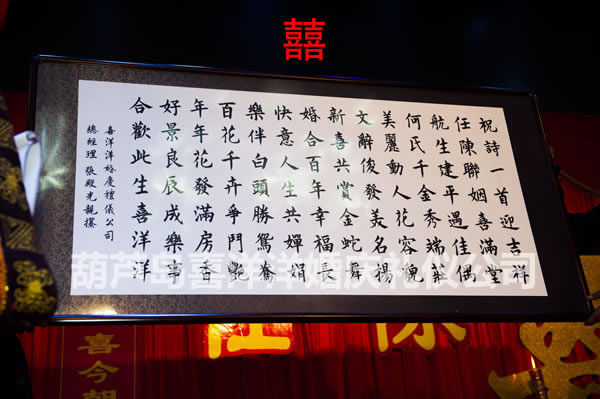 囍
祝詩一首迎吉祥
任陳聯姻喜滿堂
航生建平遇佳偶
何氏千金秀端莊
美麗動人花容貌
文辭俊發美名揚
新喜共賞金蛇舞
婚合百年幸福長
快意人生共嬋娟
樂伴白頭勝鴛鴦
百花千卉爭鬥艷
年年花發滿房香
好景良辰成樂事
合歡此生喜洋洋
喜洋洋婚慶禮儀公司
總經理 張殿光親撰
葫芦岛喜洋洋婚庆礼仪公司
喜今朝